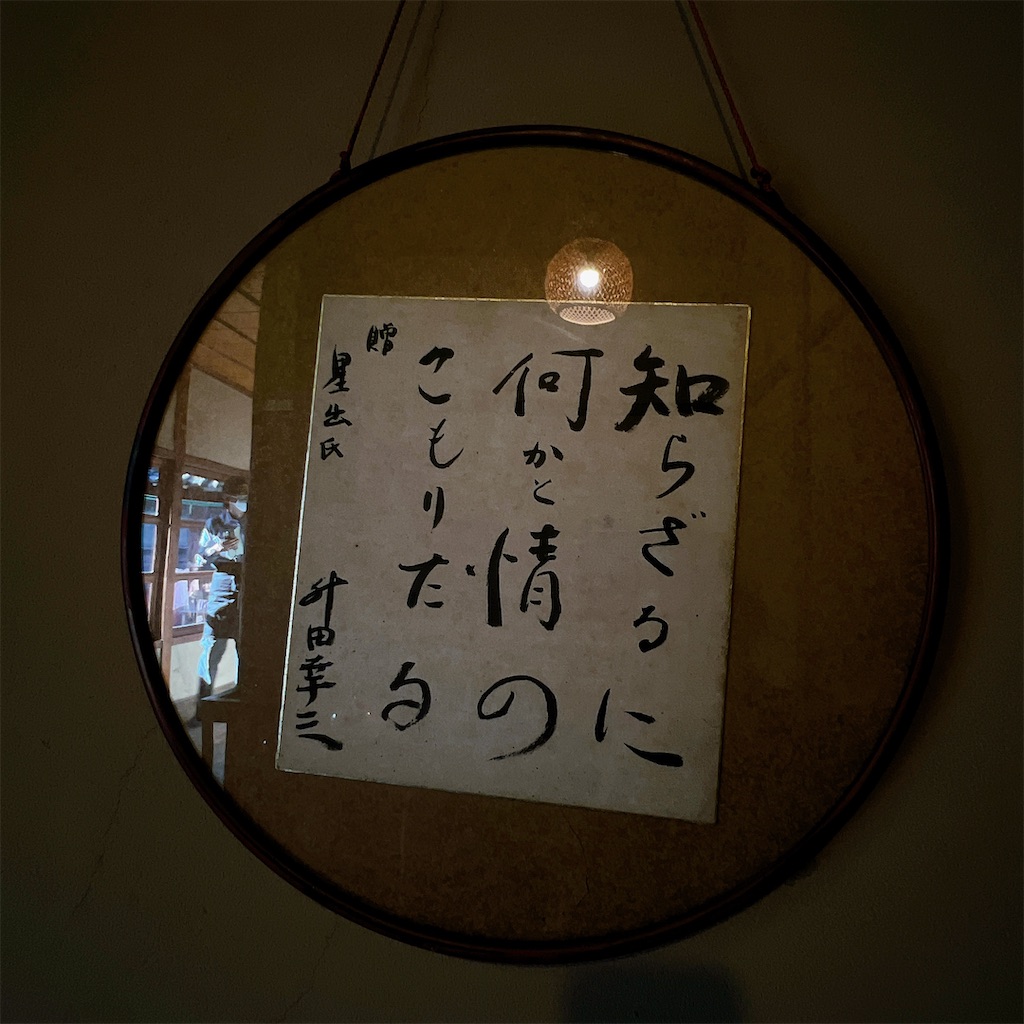 知らざるに
何かと情の
こもりだる
贈
星出氏
升田幸三